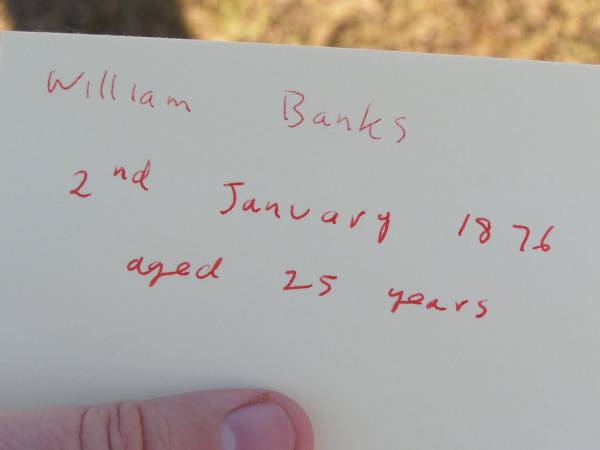 William Banks
2nd January 1876
aged 25 years